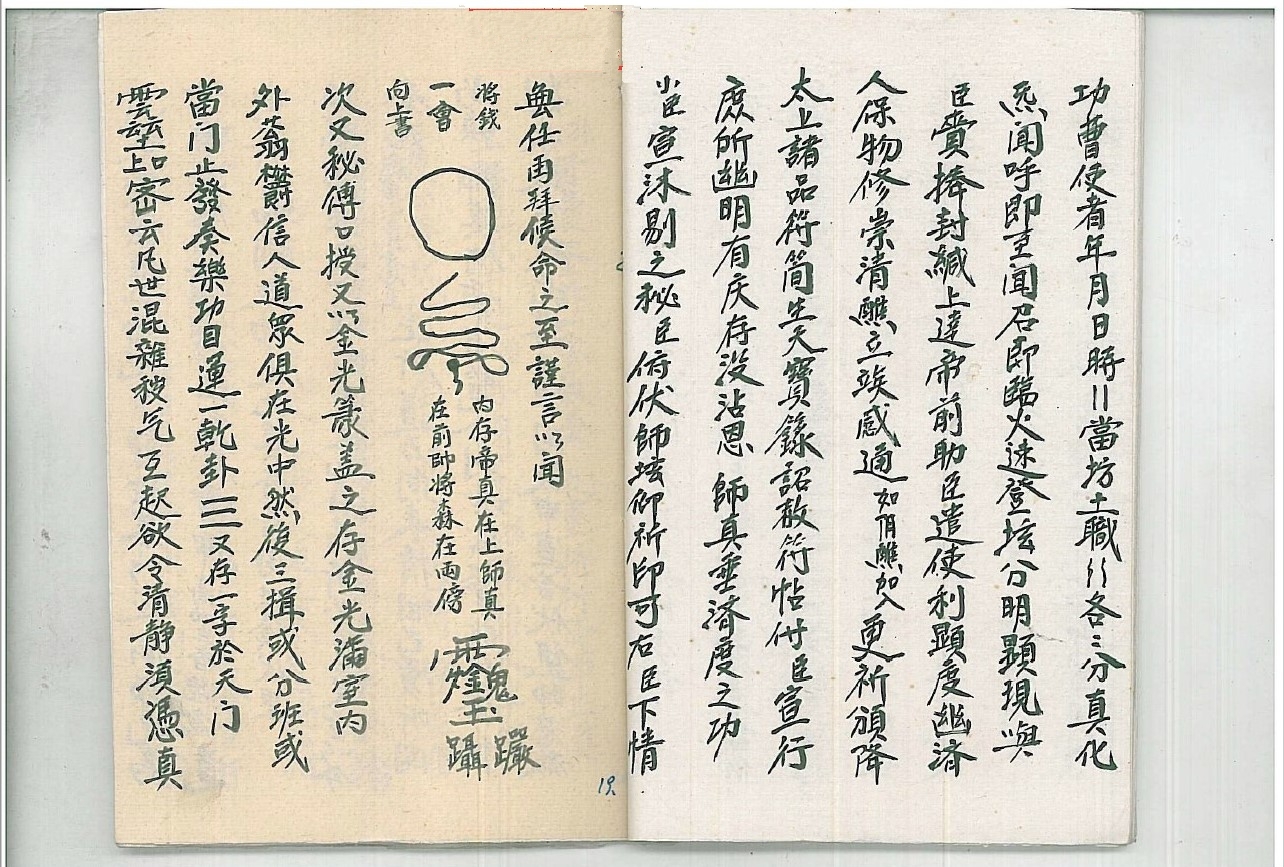 功曹使者年月日時〻當坊土職〻各〻分真化
炁闻呼即至闻召即臨火速登坛分明顯現與
臣賫捧封緘上達帝前助臣遣使利顯度幽済
人保物修崇清醮立竢感通如有醮加入更祈頒降
太上諸品符简生天寳籙詔赦符帖付臣宣行
庶所幽明有庆存没沾恩師真垂済度之功
小臣宣沐剔之秘臣俯伏師坛仰祈印可右臣下情
無任再拜候命之至謹言以闻
将錢
一會
向上書
内存帝真在上師真
在前帅将森在両傍
躡
次又秘傳口授又以金光篆盖之存金光滿室内
外蓊欝信人道眾俱在光中然後三揖或分班或
當门止發奏樂功目運一乹卦三又存一孛於天门
密云凡世混雜秽气互起欲令清静湏憑真
19